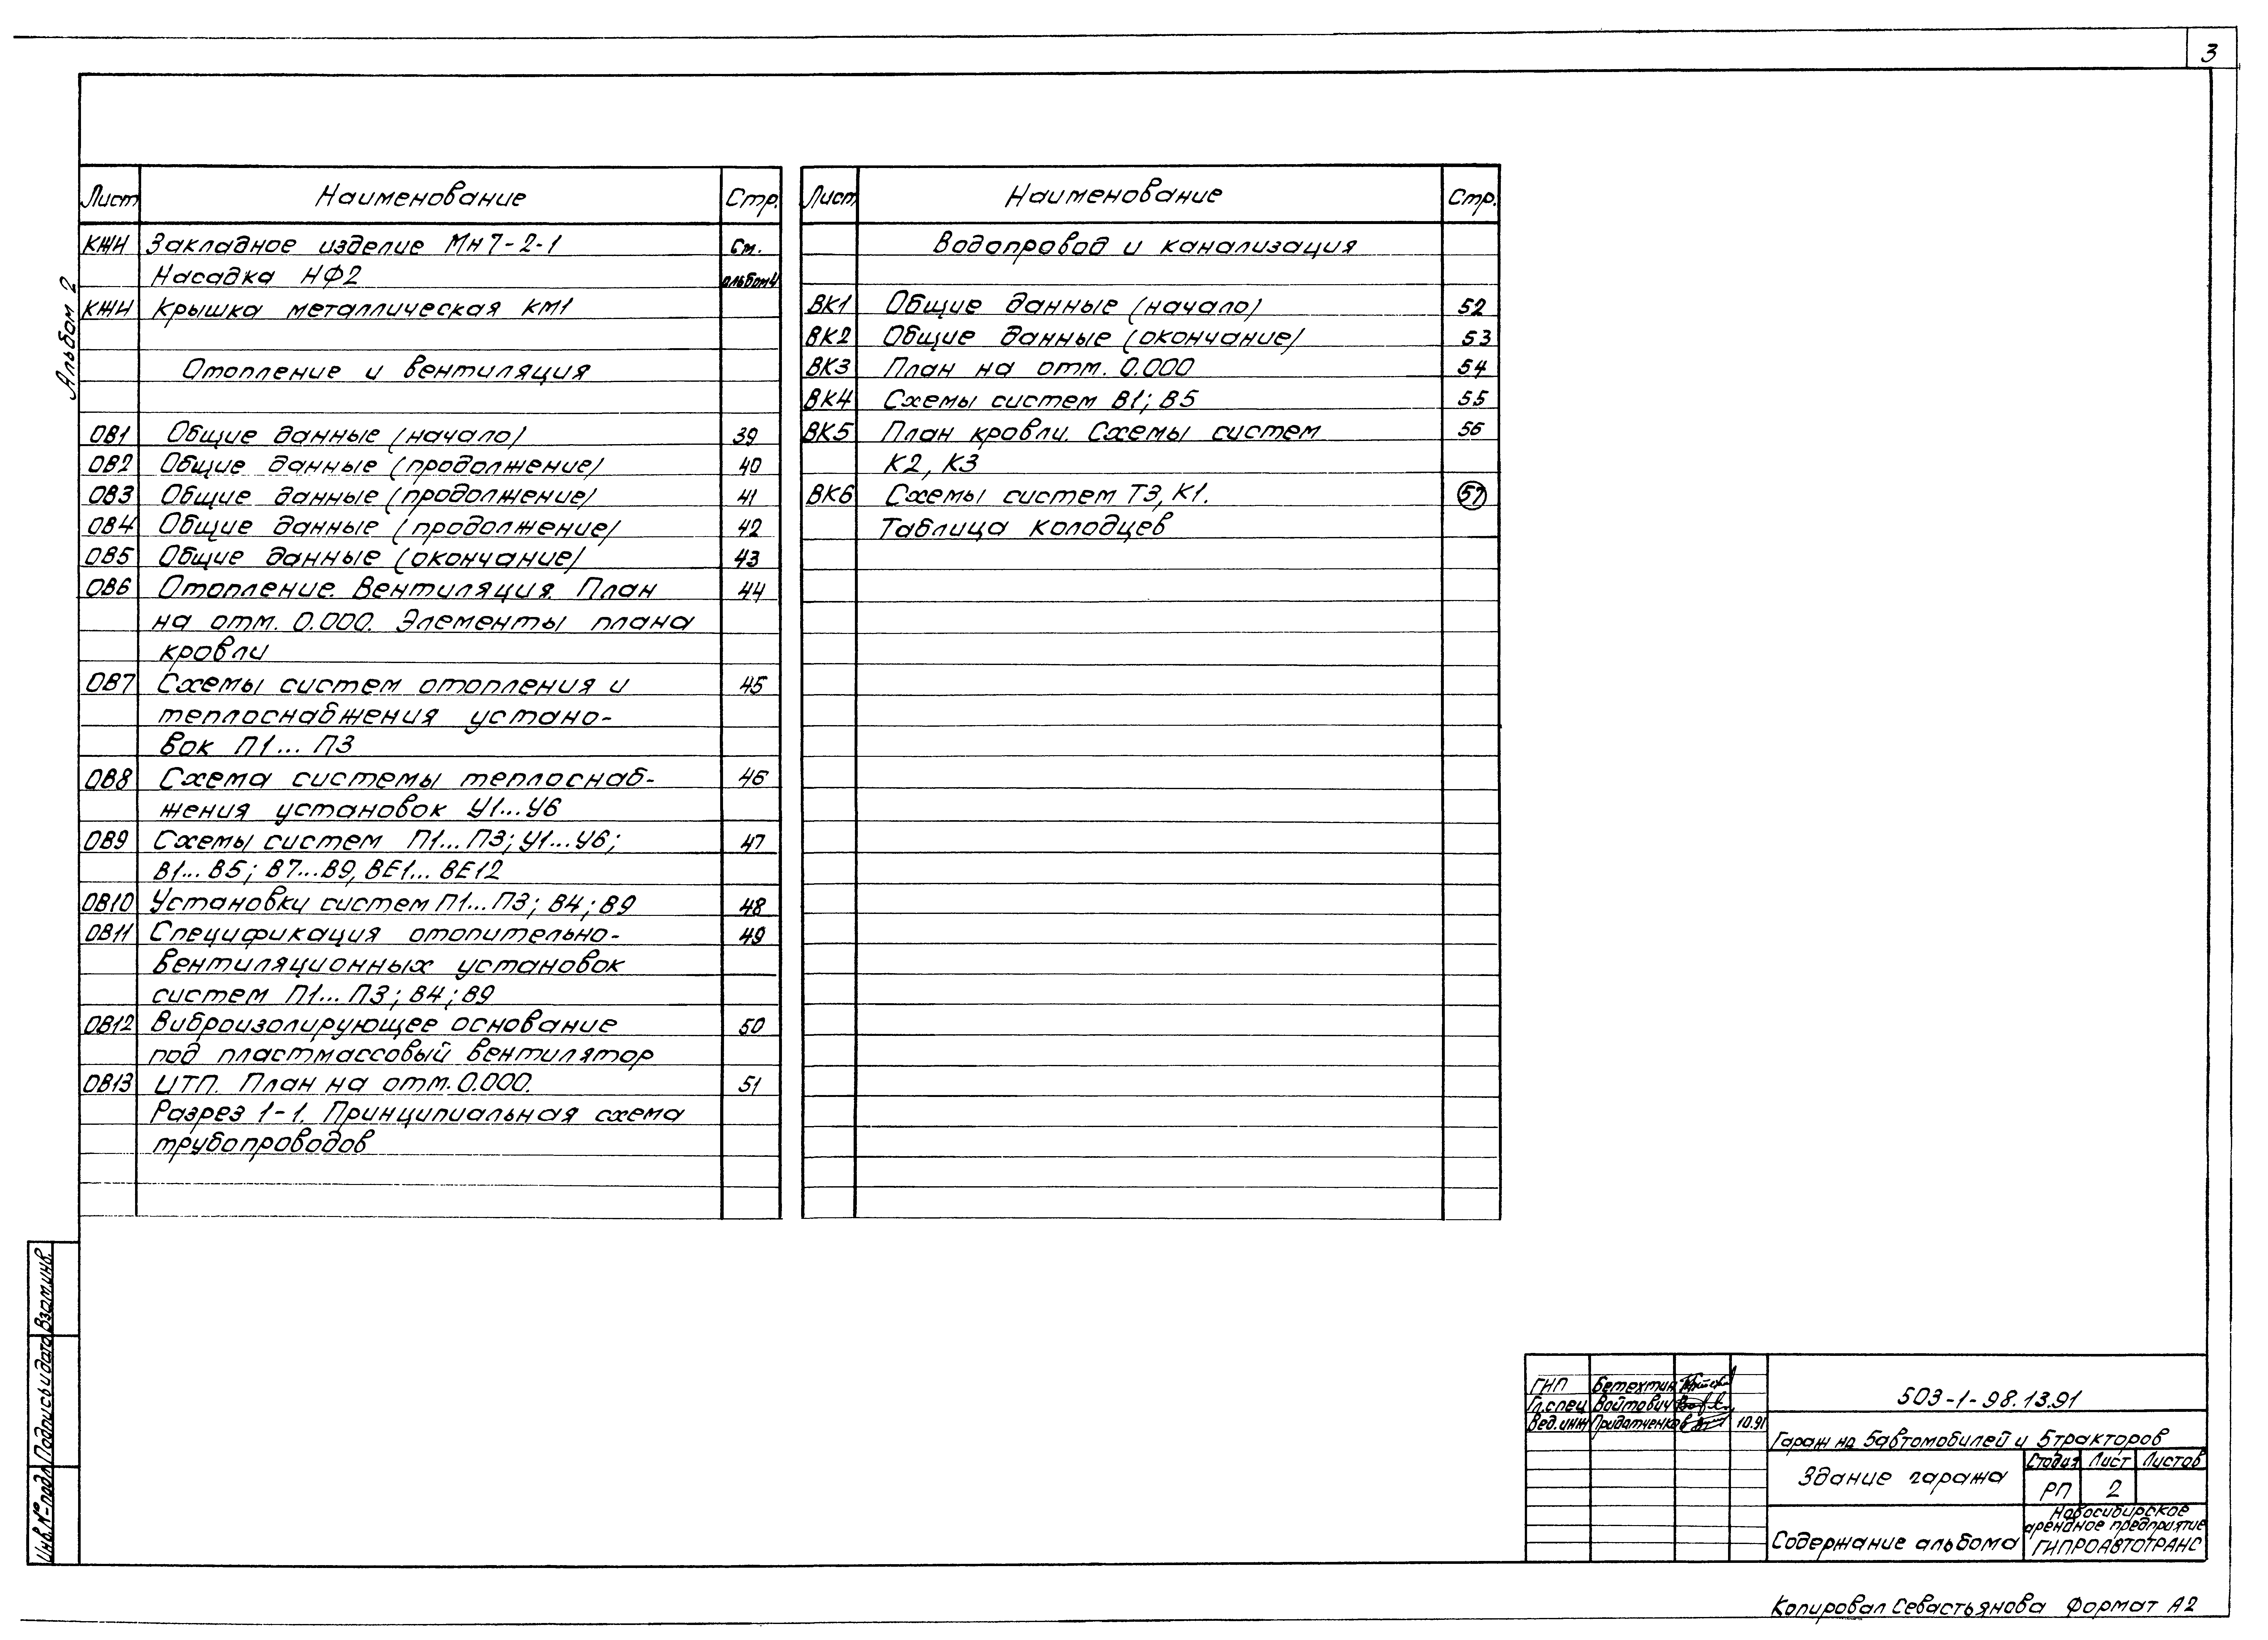 3
Альбом 2
Лист Наименование Стр.
КЖИ Закладное изделие Мн7-2-1 См.
Насадка НФ2 альбом 4
КЖИ Крышка металлическая КМ1
Отопление и вентиляция
ОВ1 Общие данные (начало) 39
ОВ2 Общие данные (продолжение) 40
ОВ3 Общие данные (продолжение) 41
ОВ4 Общие данные (продолжение) 42
ОВ5 Общие данные (окончание) 43
ОВ6 Отопление. Вентиляция. План 44
на отм. 0.000. Элементы плана
кровли
ОВ7 Схемы систем отопления и 45
теплоснабжения устано-
вок П1... П3
ОВ8 Схема системы теплоснаб- 46
жения установок У1...У6
ОВ9 Схемы систем П1... П3; У1...У6; 47
В1... В5; В7...В9, ВЕ1... ВЕ12
ОВ10 Установки систем П1... П3; В4; В9 48
ОВ11 Спецификация отопительно- 49
вентиляционных установок
систем П1... П3; В4; В9
ОВ12 Виброизолирующее основание 50
под пластмассовый вентилятор
ОВ13 ИТП. План на отм. 0.000. 51
Разрез 1-1. Принципиальная схема
трубопроводов
Лист Наименование Стр.
Водопровод и канализация
ВК1 Общие данные (начало) 52
ВК2 Общие данные (окончание) 53
ВК3 План на отм. 0.000 54
ВК4 Схемы систем В1; В5 55
ВК5 План кровли. Схемы систем 56
К2, К3
ВК6 Схемы систем Т3, К1. 57
Таблица колодцев
Инв.№ подл. Подпись и дата Взам.инв.
ГИП Бетехтин
Гл.спец Войтович
Вед.инж Придатченков 10.91
503-1-98.13.91
Гараж на 5 автомобилей и 5 тракторов
Здание гаража
Стадия Лист Листов
РП 2
Содержание альбома
Новосибирское
арендное предприятие
ГИПРОАВТОТРАНС
Копировал Севастьянова Формат А2